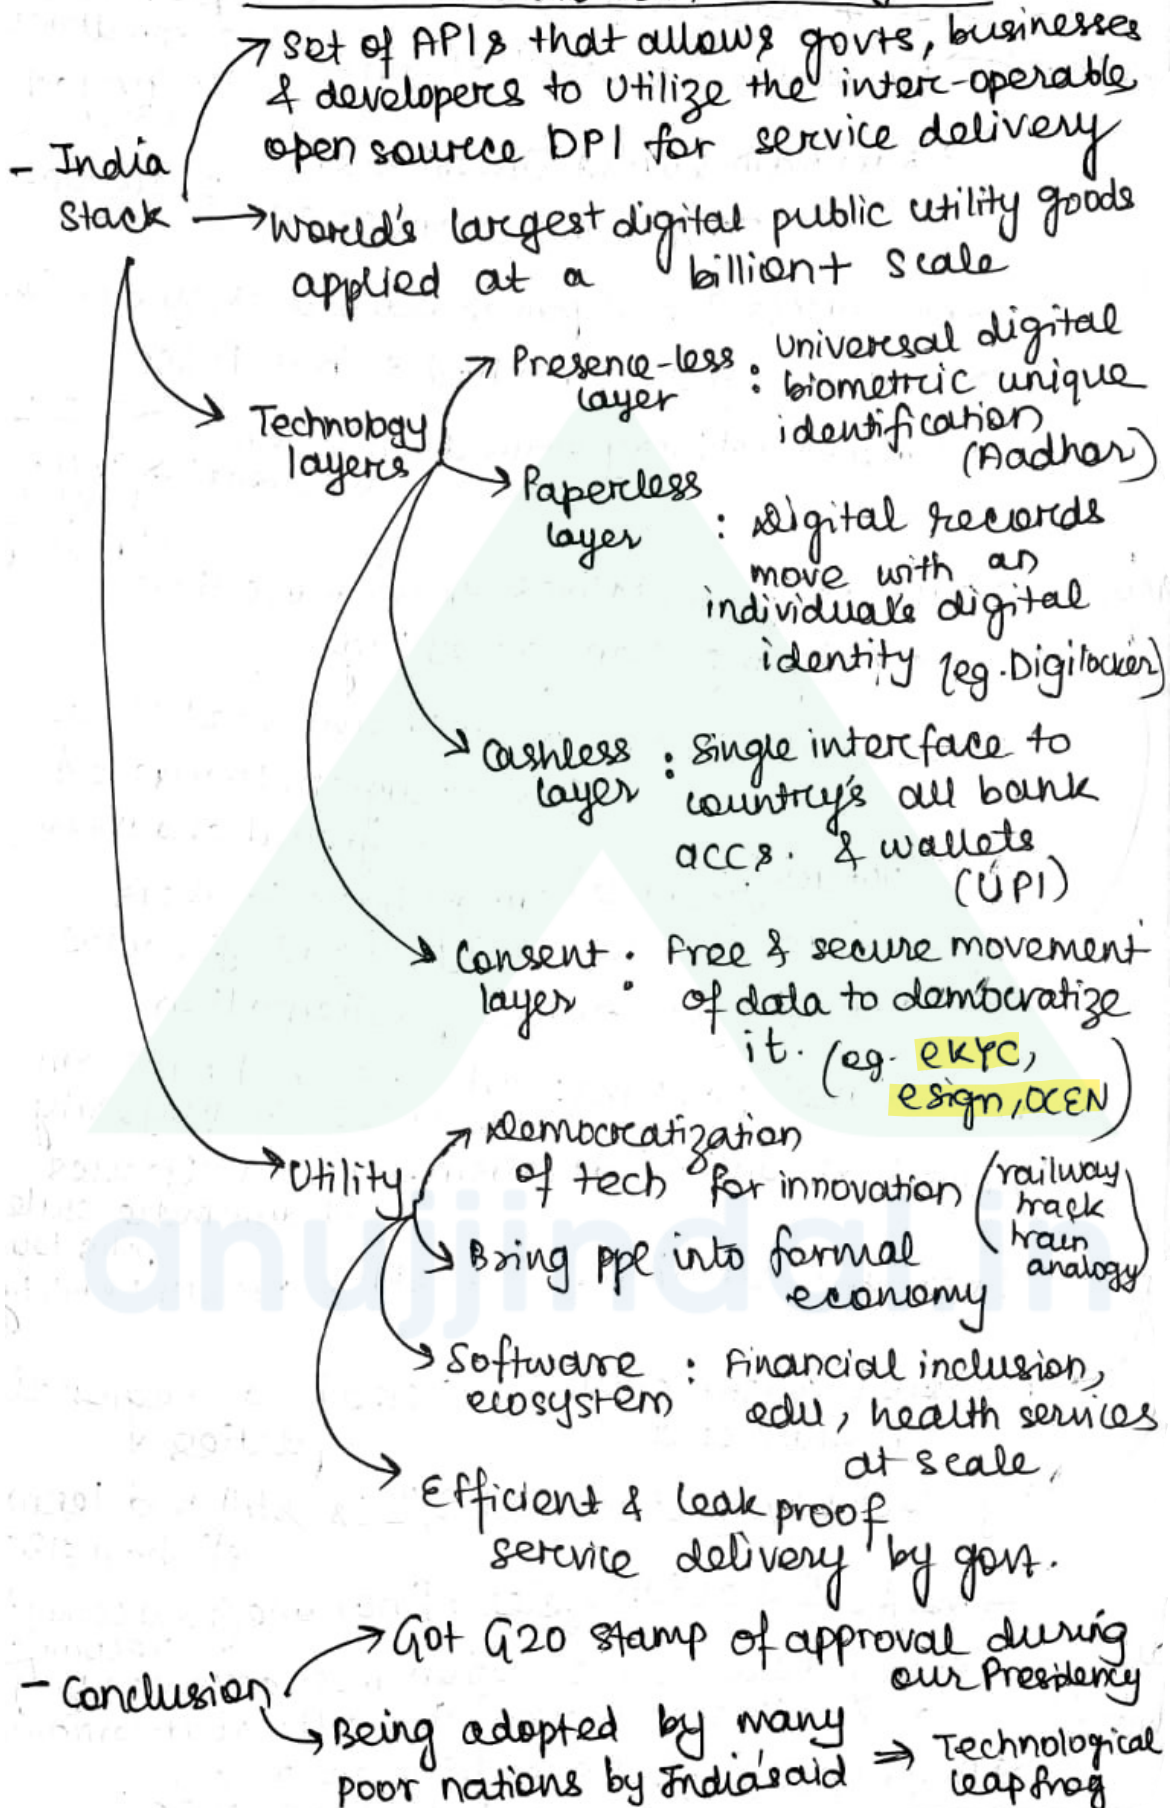 Set of APIs that allows govts, businesses
& developers to utilize the inter-operable
open source DPI for service delivery
- India
Stack
World's largest digital public utility goods
applied at a billion+ scale
Technology
layers
Presence-less
layer
: universal digital
biometric unique
identification
(Aadhar)
Paperless
layer
: Digital records
move with an
individual's digital
identity (eg. Digilocker)
Cashless
layer
: Single interface to
country's all bank
accs. & wallets
(UPI)
Consent
layer
: Free & secure movement
of data to democratize
it. (eg. eKYC,
esign, OCEN)
Utility
Democratization
of tech for innovation
(railway
track
train
analogy)
Bring ppl into formal
economy
Software
ecosystem
: Financial inclusion,
edu, health services
at scale,
Efficient & leak proof
service delivery by govt.
- Conclusion
Got G20 stamp of approval during
our Presidency
Being adopted by many
poor nations by India's aid
⇒ Technological
leapfrog
anujjindal.in